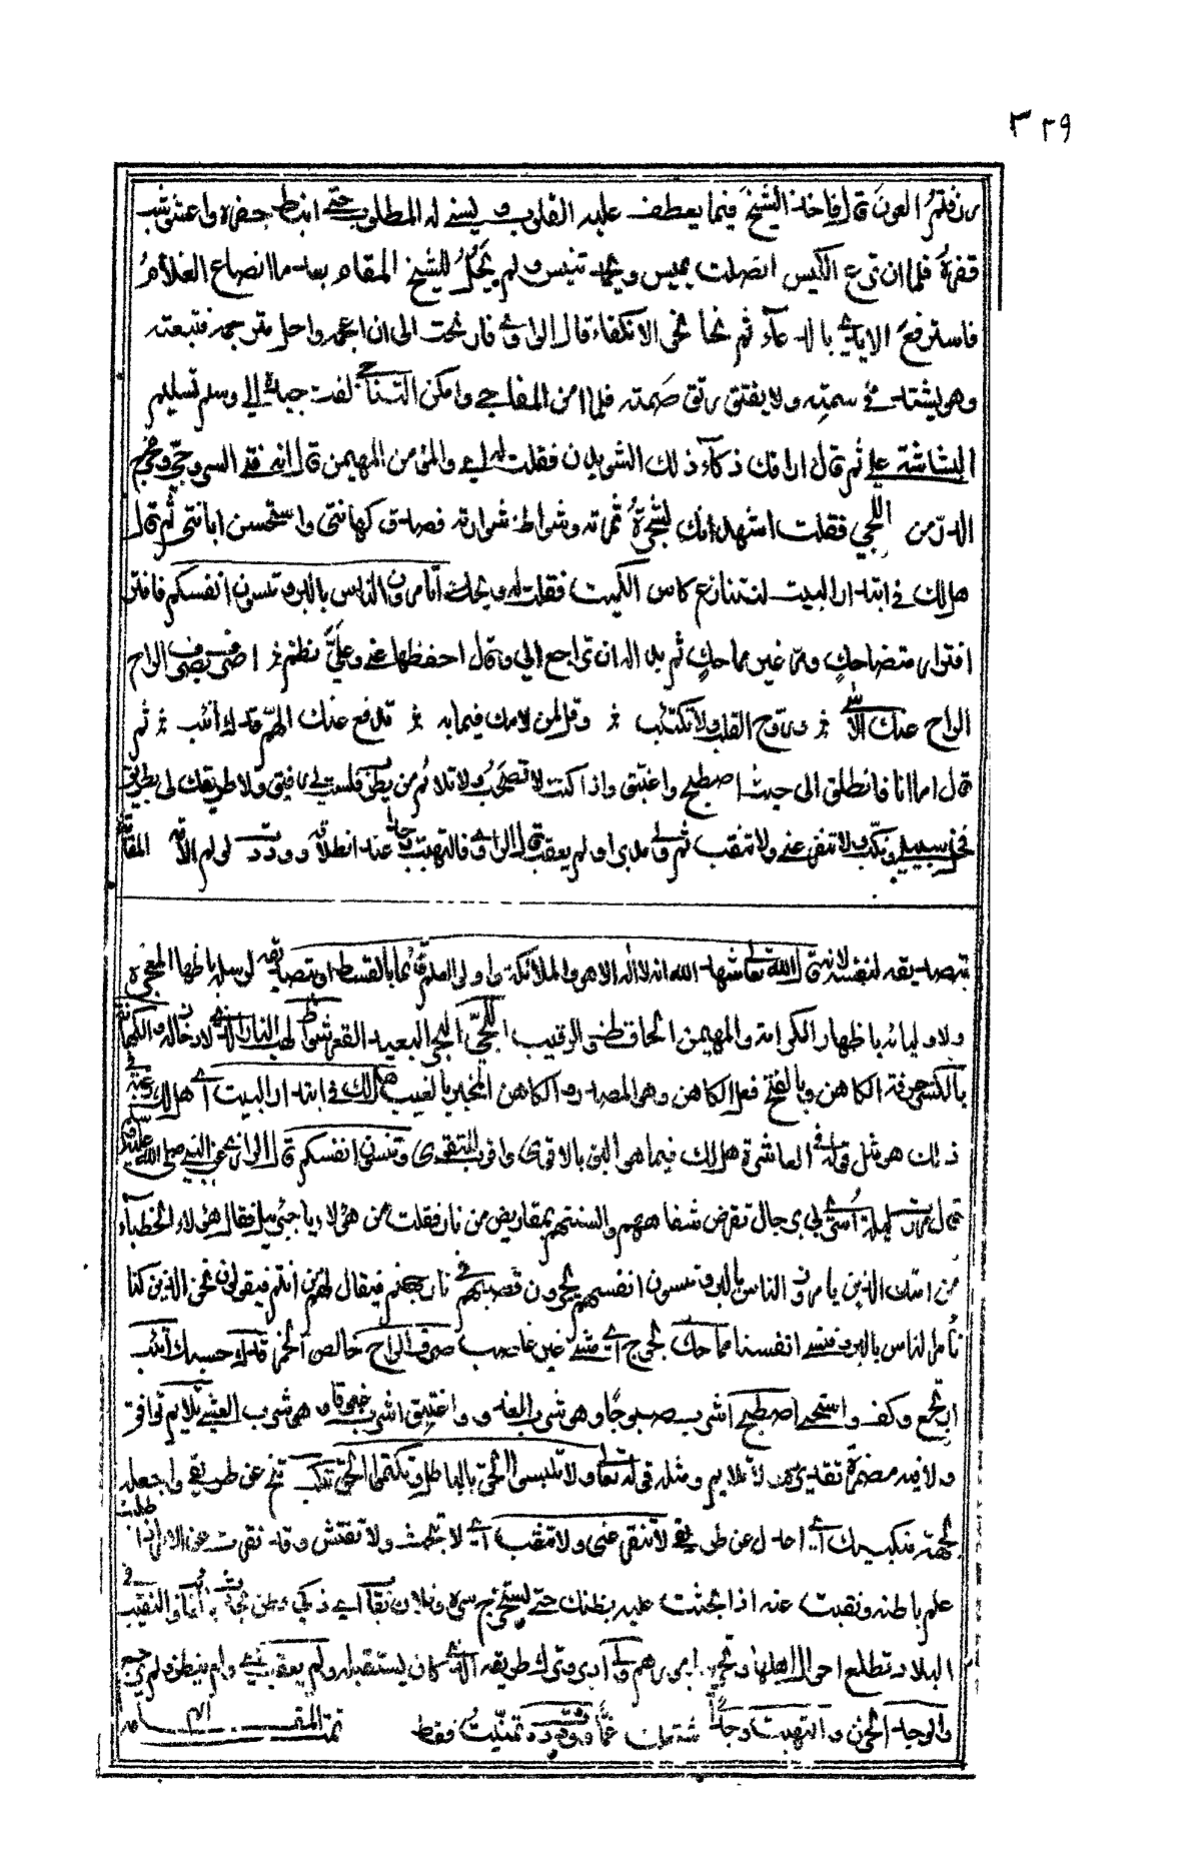 ٣٢٩
رزقتم العون قال فاخذ الشيخ فيما يعطف عليه القلوب و يسنے له المطلوب حتے انبط حفره واعشوشب
قفره فلما ان ترع الكيس انصلت يميس و يحمد تنيس و لم يحل للشيخ المقام بعد ما انصاع الغلام
فاسترفع الايدي بالدعآء ثم نحا نحو الانكفاء قال الراوي فارتحت الى ان اعجمه واحل مترجمه فتبعته
وهو يشتد في سمته ولا يفتق رتق صمته فلما امن المفاجي وامكن التناجي لفت جيده الي وسلم تسليم
البشاشة علي ثم قال اراقك ذكآء ذلك الشويدن فقلت له اي والمؤمن المهيمن قال انه فتى السروجي ومخرج
الدر من اللجي فقلت اشهد انك لشجرة ثمرته وشواظ شرارته فصدق كهانتي واستحسن ابانتي ثم قال
هل لك في ابتدار البيت لنتنازع كاس الكميت فقلت له ويحك اتامرون الناس بالبر وتنسون انفسكم فافتر
افترار متضاحك ومر غير مماحك ثم بدا له ان تراجع الي وقال احفظها عني وعلي نظم اصرف بصرف الراح
الراح عنك الاسى وروح القلب ولا تكتئب وقل لمن لامك فيما به تدفع عنك الهم قدك اتئب ثم
قال اما انا فانطلق الى حيث اصطبح واغتبق واذا كنت لا تصحب ولا تلائم من يطرب فلست لي برفيق ولا طريقك لي بطريق
فخل سبيلي ونكب ولا تنقر عني ولا تنقب ثم ولى مدبرا ولم يعقب قال الراوي فالتهبت وجدا عند انطلاقه ووددت لو لم الاقه المقامة
بتصديقه لنفسه لانه قال الله تعالى شهد الله انه لا اله الا هو والملائكة واولو العلم قائما بالقسط او بتصديقه لرسله باظهار المعجزة
ولاوليائه باظهار الكرامة والمهيمن الحافظ والرقيب اللجي البحر البعيد القعر شواظ لهب النار لا دخان له الكهانة
بالكسر حرفة الكاهن وبالفتح فعل الكاهن وهو المصدر و الكاهن المخبر بالغيب هل لك في ابتدار البيت اي هل لك رغبة في
ذلك هو مثل قوله في العاشرة هل لك فيما هو اليق بالاقوى واقرب للتقوى وتنسون انفسكم قال الراوي عن النبي صلى الله عليه وسلم
قال مررت ليلة اسري بي برجال تقرض شفاههم والسنتهم بمقاريض من نار فقلت من هؤلاء يا جبرئيل فقال هؤلاء الخطبآء
من امتك الذين يامرون الناس بالبر وتنسون انفسهم يجرون قصبهم في نار جهنم فيقال لهم من انتم فيقولون نحن الذين كنا
نأمر الناس بالبر وننسى انفسنا مماحك لجوج اي مشے غير غاضب صرف الراح خالص الخمر قدك حسبك اتئب
ارجع وكف واستحي اصطبح اشرب صبوحا وهو شرب الغدو و اغتبق اشرب غبوقا و هو شرب العشي تلايم توافق
ولا فيه مضمرة تقديره من لا تلايم و مثله قوله تعالى ولا تلبسوا الحق بالباطل وتكتموا الحق تنكب تنح عن طريقي واجعله
لجهة منكبيك اي اعدل عن طريقي لا تنقر عني ولا تنقب اي لا تبحث ولا تفتش وقد نقرت عن الامر اذا طلبت
علم باطنه ونقبت عنه اذا بحثت عليه بظنك حتے تستخرج سره وفلان نقاب اي ذكي
البلاد تطلع احوال اهلها ولى ادبر وترك طريقه الذي كان يستقبله ولم يعقب اي ولم ينتظر ولم يرجع
والوجد الحزن و التهبت وجدا وددت تمنيت فقط تمت المقامة